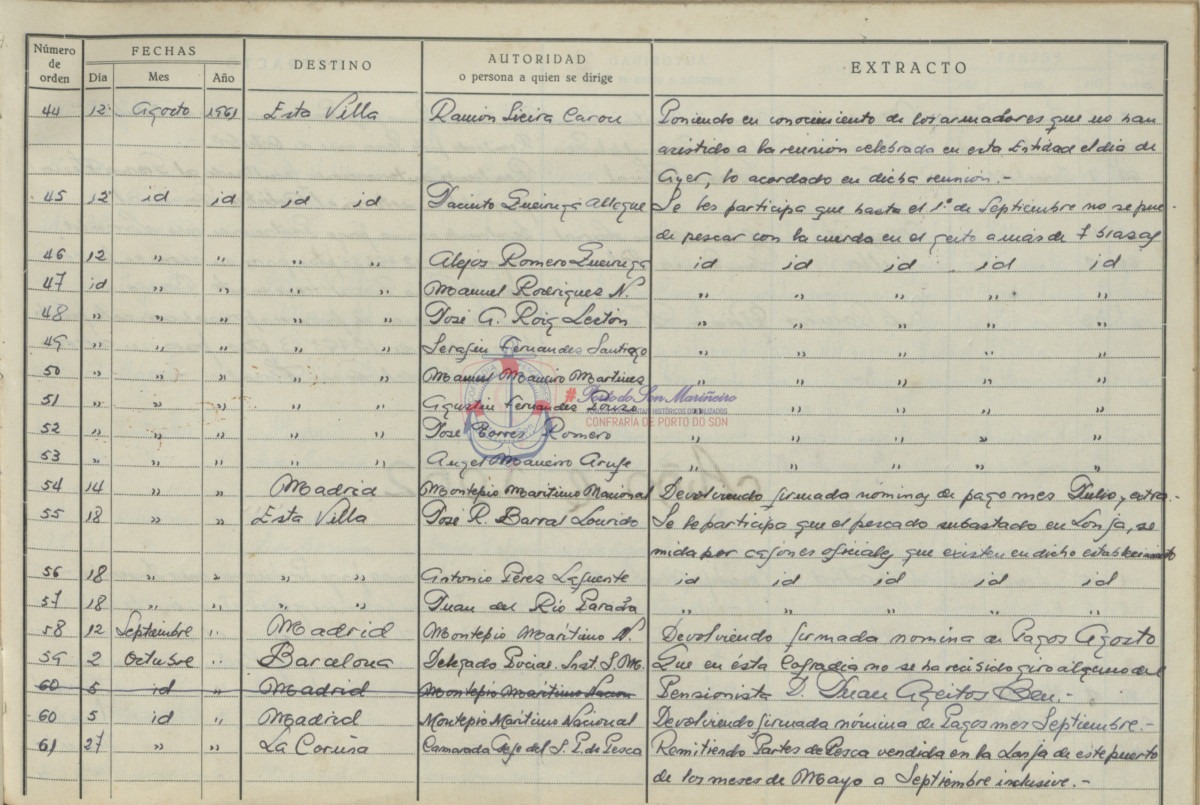 Número de orden FECHAS DESTINO AUTORIDAD o persona a quien se dirige EXTRACTO
Día Mes Año
44 12 Agosto 1961 Esta Villa Ramón Lieira Carou Poniendo en conocimiento de los armadores que no han
asistido a la reunión celebrada en esta Entidad el día de
Ayer, lo acordado en dicha reunión.-
45 12 id id id id Jacinto Queiruga Allegue Se les participa que hasta el 1º de Septiembre no se pue-
de pescar con la cuerda en el geito a más de 7 brazas
46 12 " " " " Alejos Romero Queiruga id id id id id
47 id " " " " Manuel Rodrigues N. " " " " "
48 " " " " " José A. Roig Lestón " " " " "
49 " " " " " Serafin Fernandes Santiago " " " " "
50 " " " " " Manuel Maneiro Martines " " " " "
51 " " " " " Agustin Fernandes Souso " " " "
52 " " " " " José Torres Romero " " " " "
53 " " " " " Angel Maneiro Arufe " " " " "
54 14 " " Madrid Montepio Maritimo Nacional Devolviendo firmada nominas de pago mes Julio y extra.-
55 18 " " Esta Villa José R. Barral Lourido Se le participa que el pescado subastado en Lonja, se
mida por cajones oficiales que existen en dicho establecimiento
56 18 " " " " Antonio Pérez Lafuente id id id id id
57 18 " " " " Juan del Río Parada " " " " "
58 12 Septiembre " Madrid Montepio Marítimo N. Devolviendo firmada nomina de Pagos Agosto
59 2 Octubre " Barcelona Delegado Provcial. Inst. S. M. Que en ésta Cofradia no se ha recibido giro alguno del
60 5 id " Madrid Montepio Maritimo Nacion Pensionista D. Juan Ageitos Ben.-
60 5 id " Madrid Montepio Marítimo Nacional Devolviendo firmada nómina de Pagos mes Septiembre.-
61 27 " " La Coruña Camarada Gefe del S. P. de Pesca Remitiendo Partes de Pesca vendida en la Lonja de este puerto
de los meses de Mayo a Septiembre inclusive.-
#Porto do Son Mariñeiro
CONFRARIA DE PORTO DO SON